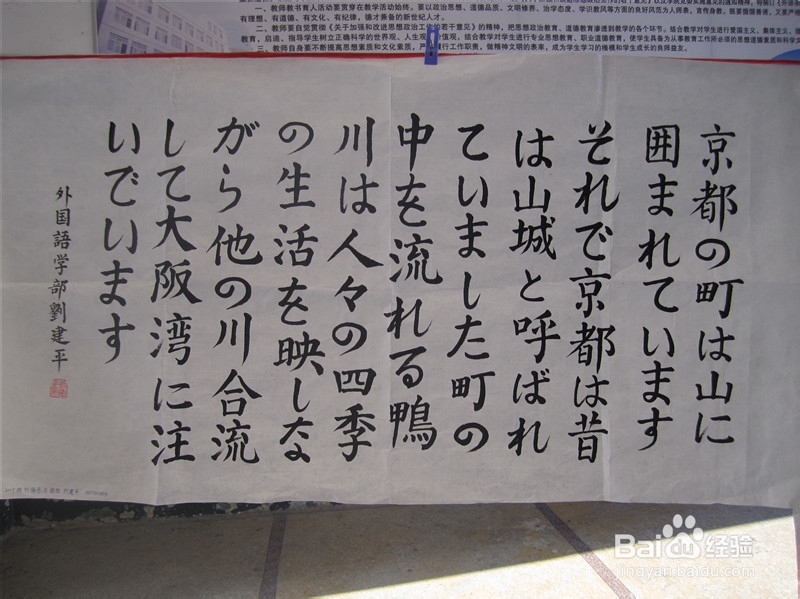 一、教师教书育人活动要贯穿在教学活动始终。要以政治思想、道德品质、文明修养、治学态度、学识教风等方面的良好风范为人师表,
有理想、有道德、有文化、有纪律,德才兼备的新世纪人才。
二、教师要自觉贯彻《关于加强和改进思想政治工作的若干意见》的精神,把思想政治教育、道德教育渗透到教学的各个环节。
三、教师自身要不断提高思想素质和文化素质,
成为学生学习的楷模和学生成长的良师益友。
京都の町は山に
囲まれています
それで京都は昔
は山城と呼ばれ
ていました町の
中を流れる鴨
川は人々の四季
の生活を映しな
がら他の川合流
して大阪湾に注
いでいます
外国語学部劉建平
Baidu经验
jingyan.baidu.com